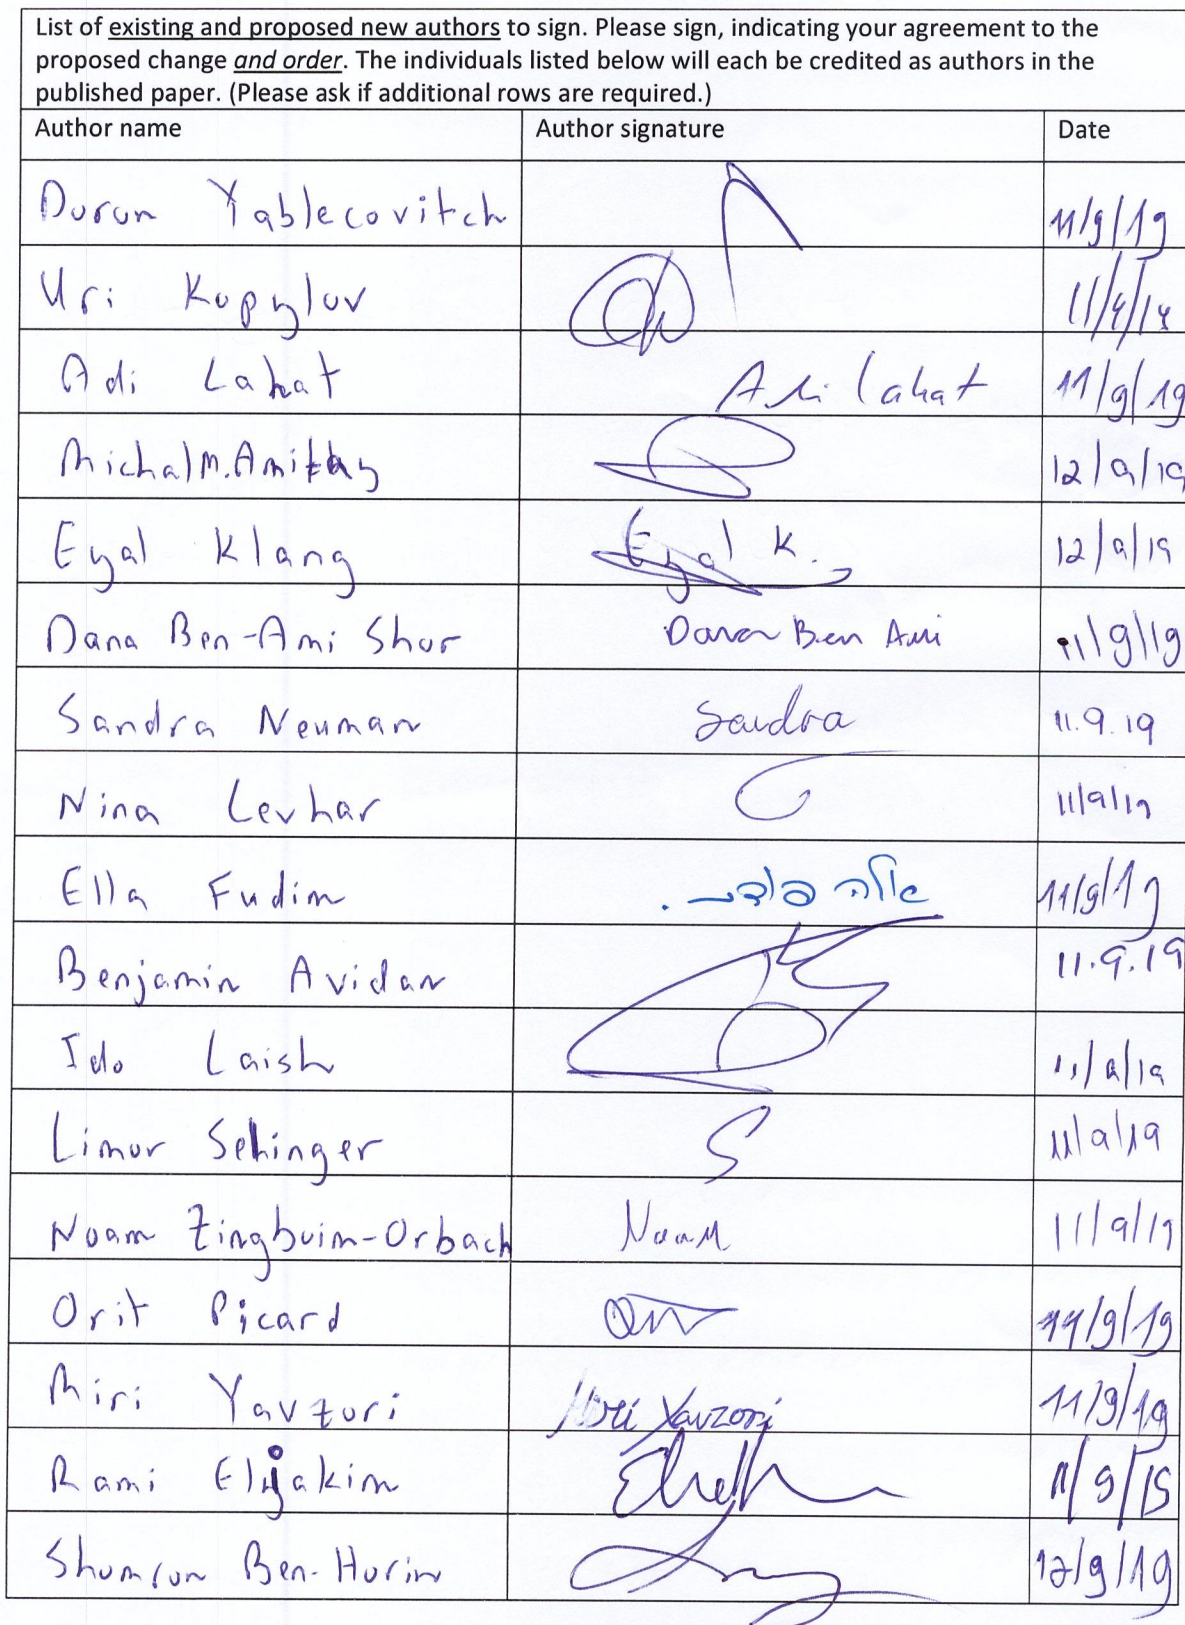 List of existing and proposed new authors to sign. Please sign, indicating your agreement to the
proposed change and order. The individuals listed below will each be credited as authors in the
published paper. (Please ask if additional rows are required.)
Author name Author signature Date
Doron Yablecovitch 11/9/19
Uri Kopylov
Adi Lahat Adi Lahat 11/9/19
Michal M. Amitay 12/9/19
Eyal Klang Eyal K. 12/9/19
Dana Ben-Ami Shor Dana Ben Ami 11/9/19
Sandra Neuman Sandra 11.9.19
Nina Levhar 11/9/19
Ella Fudim אלה 11/9/19
Benjamin Avidan 11.9.19
Ido Laish 11/9/19
Limor Selinger 11/9/19
Noam Zingboim-Orbach Noam 11/9/19
Orit Picard 11/9/19
Miri Yavzori Miri Yavzori 11/9/19
Rami Eliakim
Shomron Ben-Horin 12/9/19